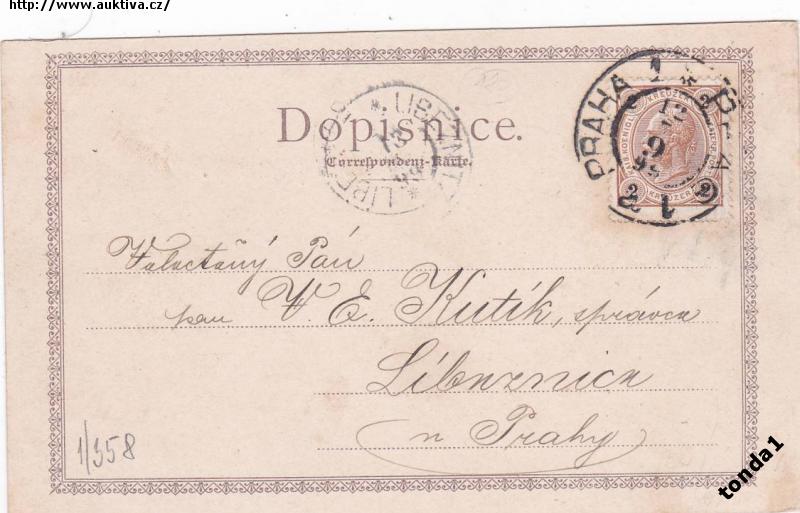 http://www.auktiva.cz/
Dopisnice.
Correspondenz-Karte.
PRAHA 1
2 KREUZER 2
Velectěný Pán
pan V. E. Kutík, správce
Líbeznice
u Prahy
1/358
tonda1